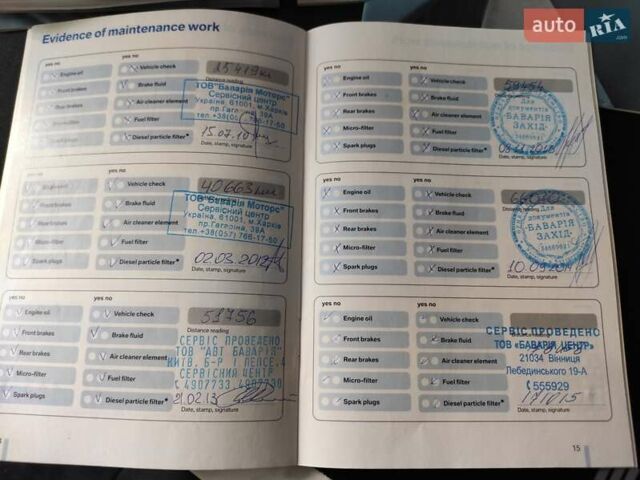 auto RIA.com
Evidence of maintenance work
yes no yes no
Engine oil Vehicle check 25419км
Brake fluid Distance reading
Front brakes
Rear brakes Air cleaner element
Fuel filter
Diesel particle filter*
Date, stamp, signature
ТОВ"Баварія Моторс"
Сервісний центр
Україна, 61001, м.Харків
пр.Гагаріна, 39А
15.07.10
yes no yes no
Vehicle check 40663км
Front brakes Brake fluid
Air cleaner element
Micro-filter Fuel filter
Spark plugs Diesel particle filter*
Date, stamp, signature
ТОВ"Баварія Моторс"
Сервісний центр
Україна, 61001, м.Харків
пр.Гагаріна, 39А
тел.+38(057) 766-17-50
02.03.2012
yes no yes no
Engine oil Vehicle check 51756
Distance reading
Front brakes Brake fluid
Rear brakes Air cleaner element
Micro-filter Fuel filter
Spark plugs Diesel particle filter*
Date, stamp, signature
СЕРВІС ПРОВЕДЕНО
ТОВ "АВТ БАВАРІЯ"
СЕРВІСНИЙ ЦЕНТР
21.02.13
yes no yes no
Engine oil Vehicle check
Front brakes Brake fluid
Rear brakes Air cleaner element
Micro-filter Fuel filter
Spark plugs Diesel particle filter*
Date, stamp, signature
Для
документів
БАВАРІЯ
ЗАХІД
yes no yes no
Engine oil Vehicle check
Front brakes Brake fluid
Rear brakes Air cleaner element
Micro-filter Fuel filter
Spark plugs Diesel particle filter*
Date, stamp, signature
Для
документів
БАВАРІЯ
ЗАХІД
yes no yes no
Engine oil Vehicle check
Front brakes Brake fluid
Rear brakes Air cleaner element
Micro-filter Fuel filter
Spark plugs Diesel particle filter*
Date, stamp, signature
СЕРВІС ПРОВЕДЕНО
ТОВ «БАВАРІЯ ЦЕНТР»
21034 Вінниця
Лебединського 19-А
555929
171015
15